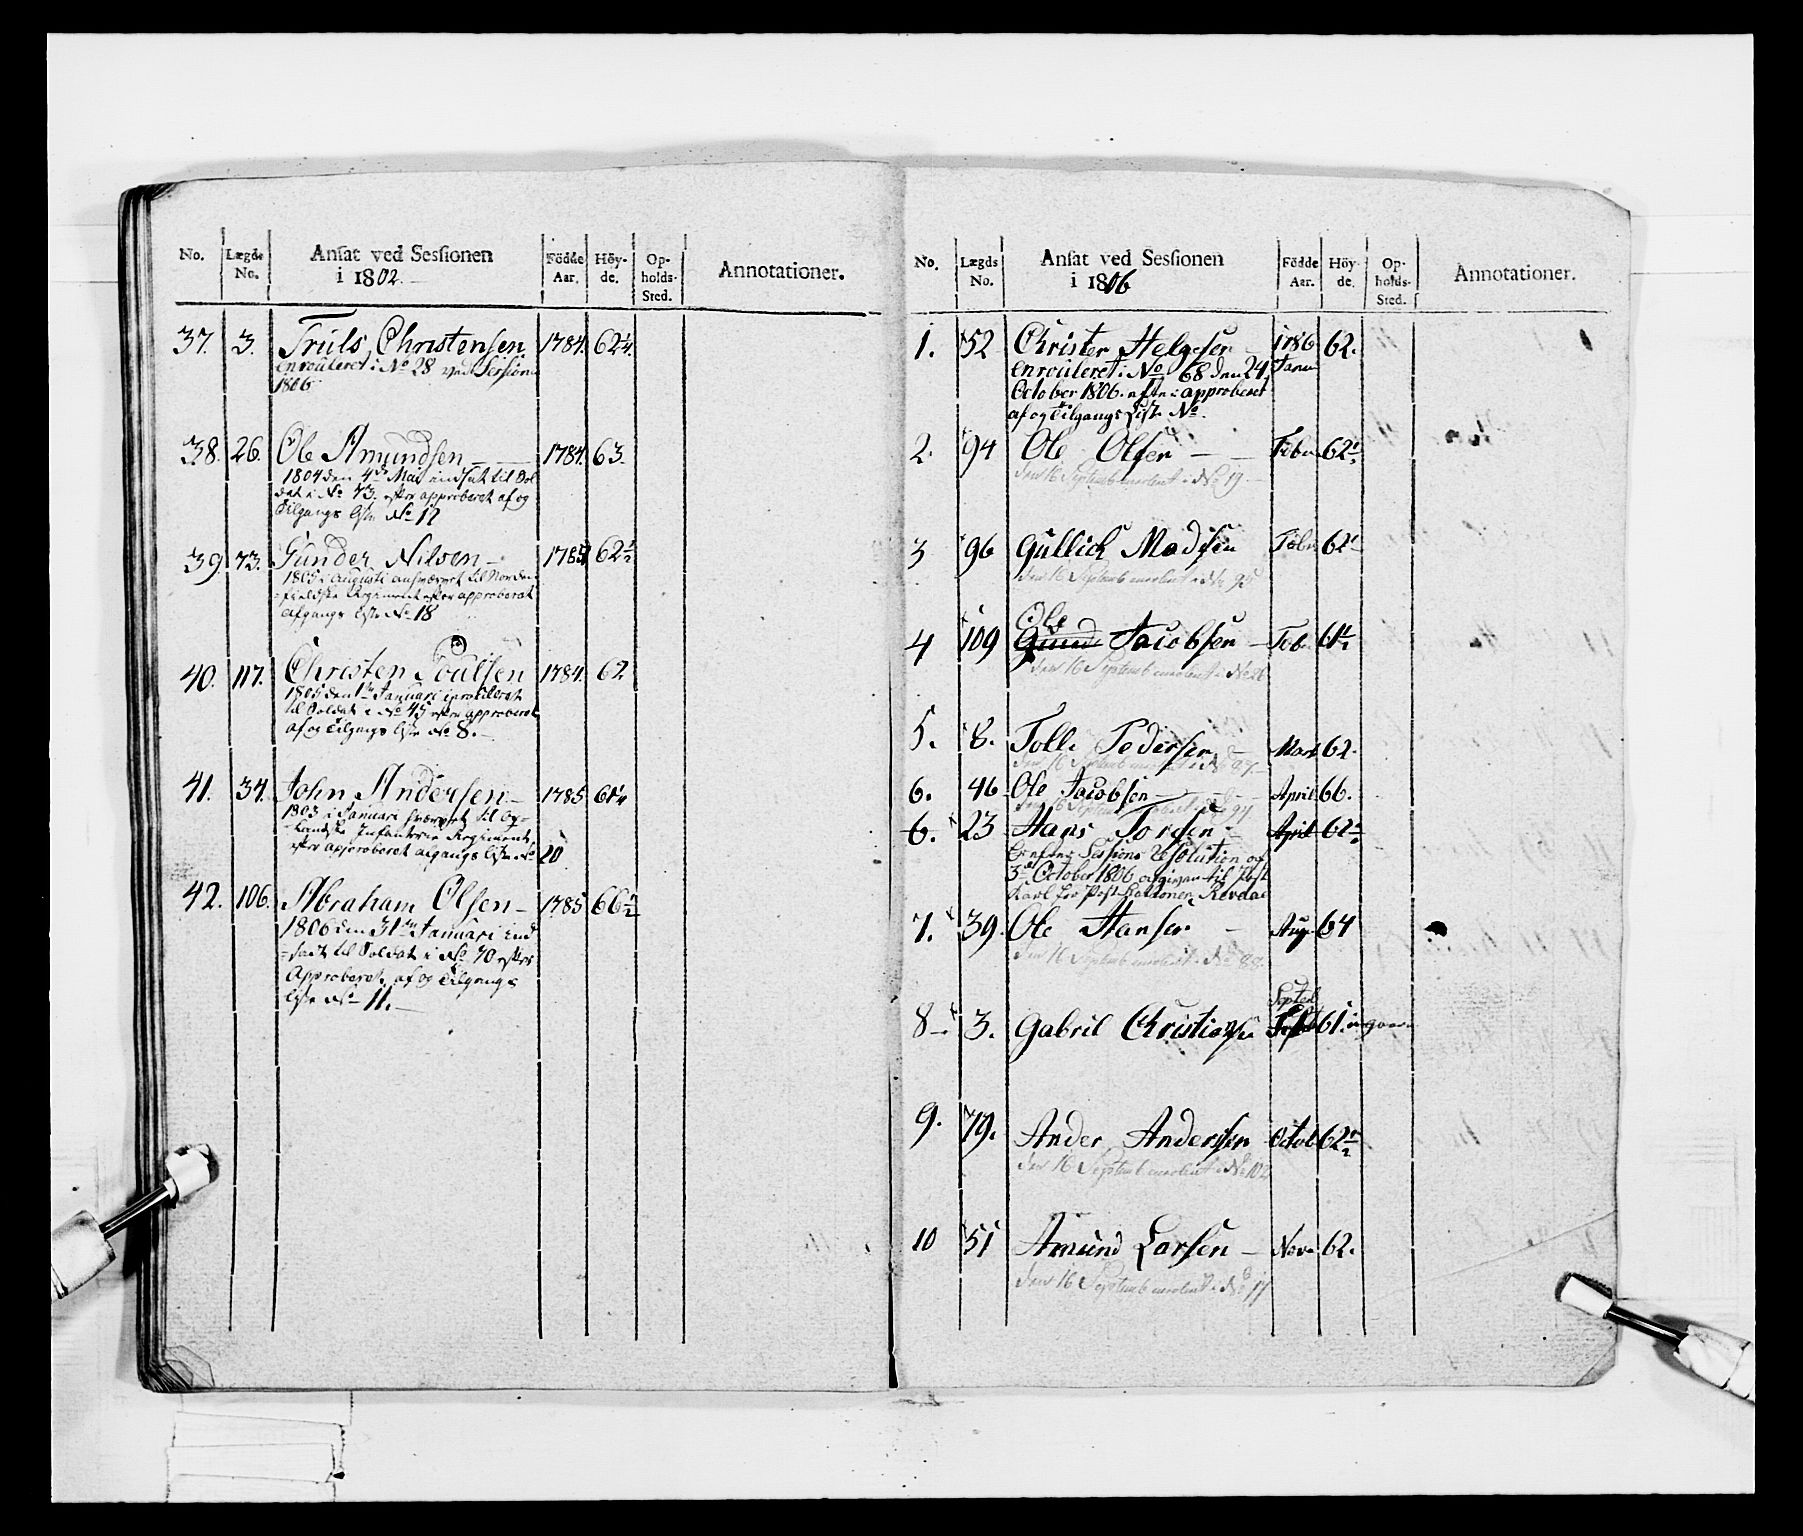 No. Lægds No. Ansat ved Sessionen i 1802. Födde Aar. Höyde. Opholds-Sted. Annotationer.
37. 3. Truls Christensen 1784. 62 1/4.
enrouleret i No 28 ved Session
1806
38. 26. Ole Amundsen 1784. 63.
1804 den 4de Mai indsat til Sol
dat i No 73. efter approberet af og
Tilgangs liste No 17
39. 73. Gunder Nilsen 1785 62 1/2
1805 i Augusti til Norden
fieldske Regiment efter approberet
afgangs liste No 18
40. 117. Christen Poulsen 1784. 62
1805 den 1te Januari
til Soldat i No 45 efter approberet
af og Tilgangs liste No 8.
41. 34. John Andersen 1785 61 1/4
1803 i Januari hvervet til Op-
landske Infanterie Regiment
efter approberet afgangs liste No 20
42. 106. Abraham Olsen 1785 66 1/2
1806 den 31te Januari ind
sadt til Soldat i No 70 efter
Approberet af og Tilgangs
liste No 11.
No. Lægds No. Ansat ved Sessionen i 1806 Födde Aar. Höyde. Opholds-Sted. Annotationer.
1. 52 Christer Helgesen 1786 62.
enrouleret i No 68 den 24 Janu
October 1806. efter approberet
af og Tilgangs Liste No.
2. 94 Ole Olsen Febr 62 1/2
den 16 Septemb enrolert i No 19
3 96 Gullich Madsen Febr 62 1/2
den 16 Septemb enrolert i No 95
Ole
4 109 Jacobsen Feb. 61 1/2
den 16 Septemb enrolert i No 26
5. 8. Tolle Pedersen Mart 62.
den 16 Septemb enrolert i No 97
6. 46 Ole Jacobsen April 66.
den 16 Septemb
6. 23 Hans April 62 1/2
Sessions Resolution af
3de October 1806 afgiven til Post
Karl for Post
7. 39. Ole Hansen Aug. 64
den 16 Septemb enrolert i No 88
Septeb
8 3. Gabril Christiansen 61.
9. 79. Ander Andersen Octob 62 1/2
den 16 Septemb enrolert i No 102
10 51 Amund Larsen Nove 62.
den 16 Septemb enrolert i No 17